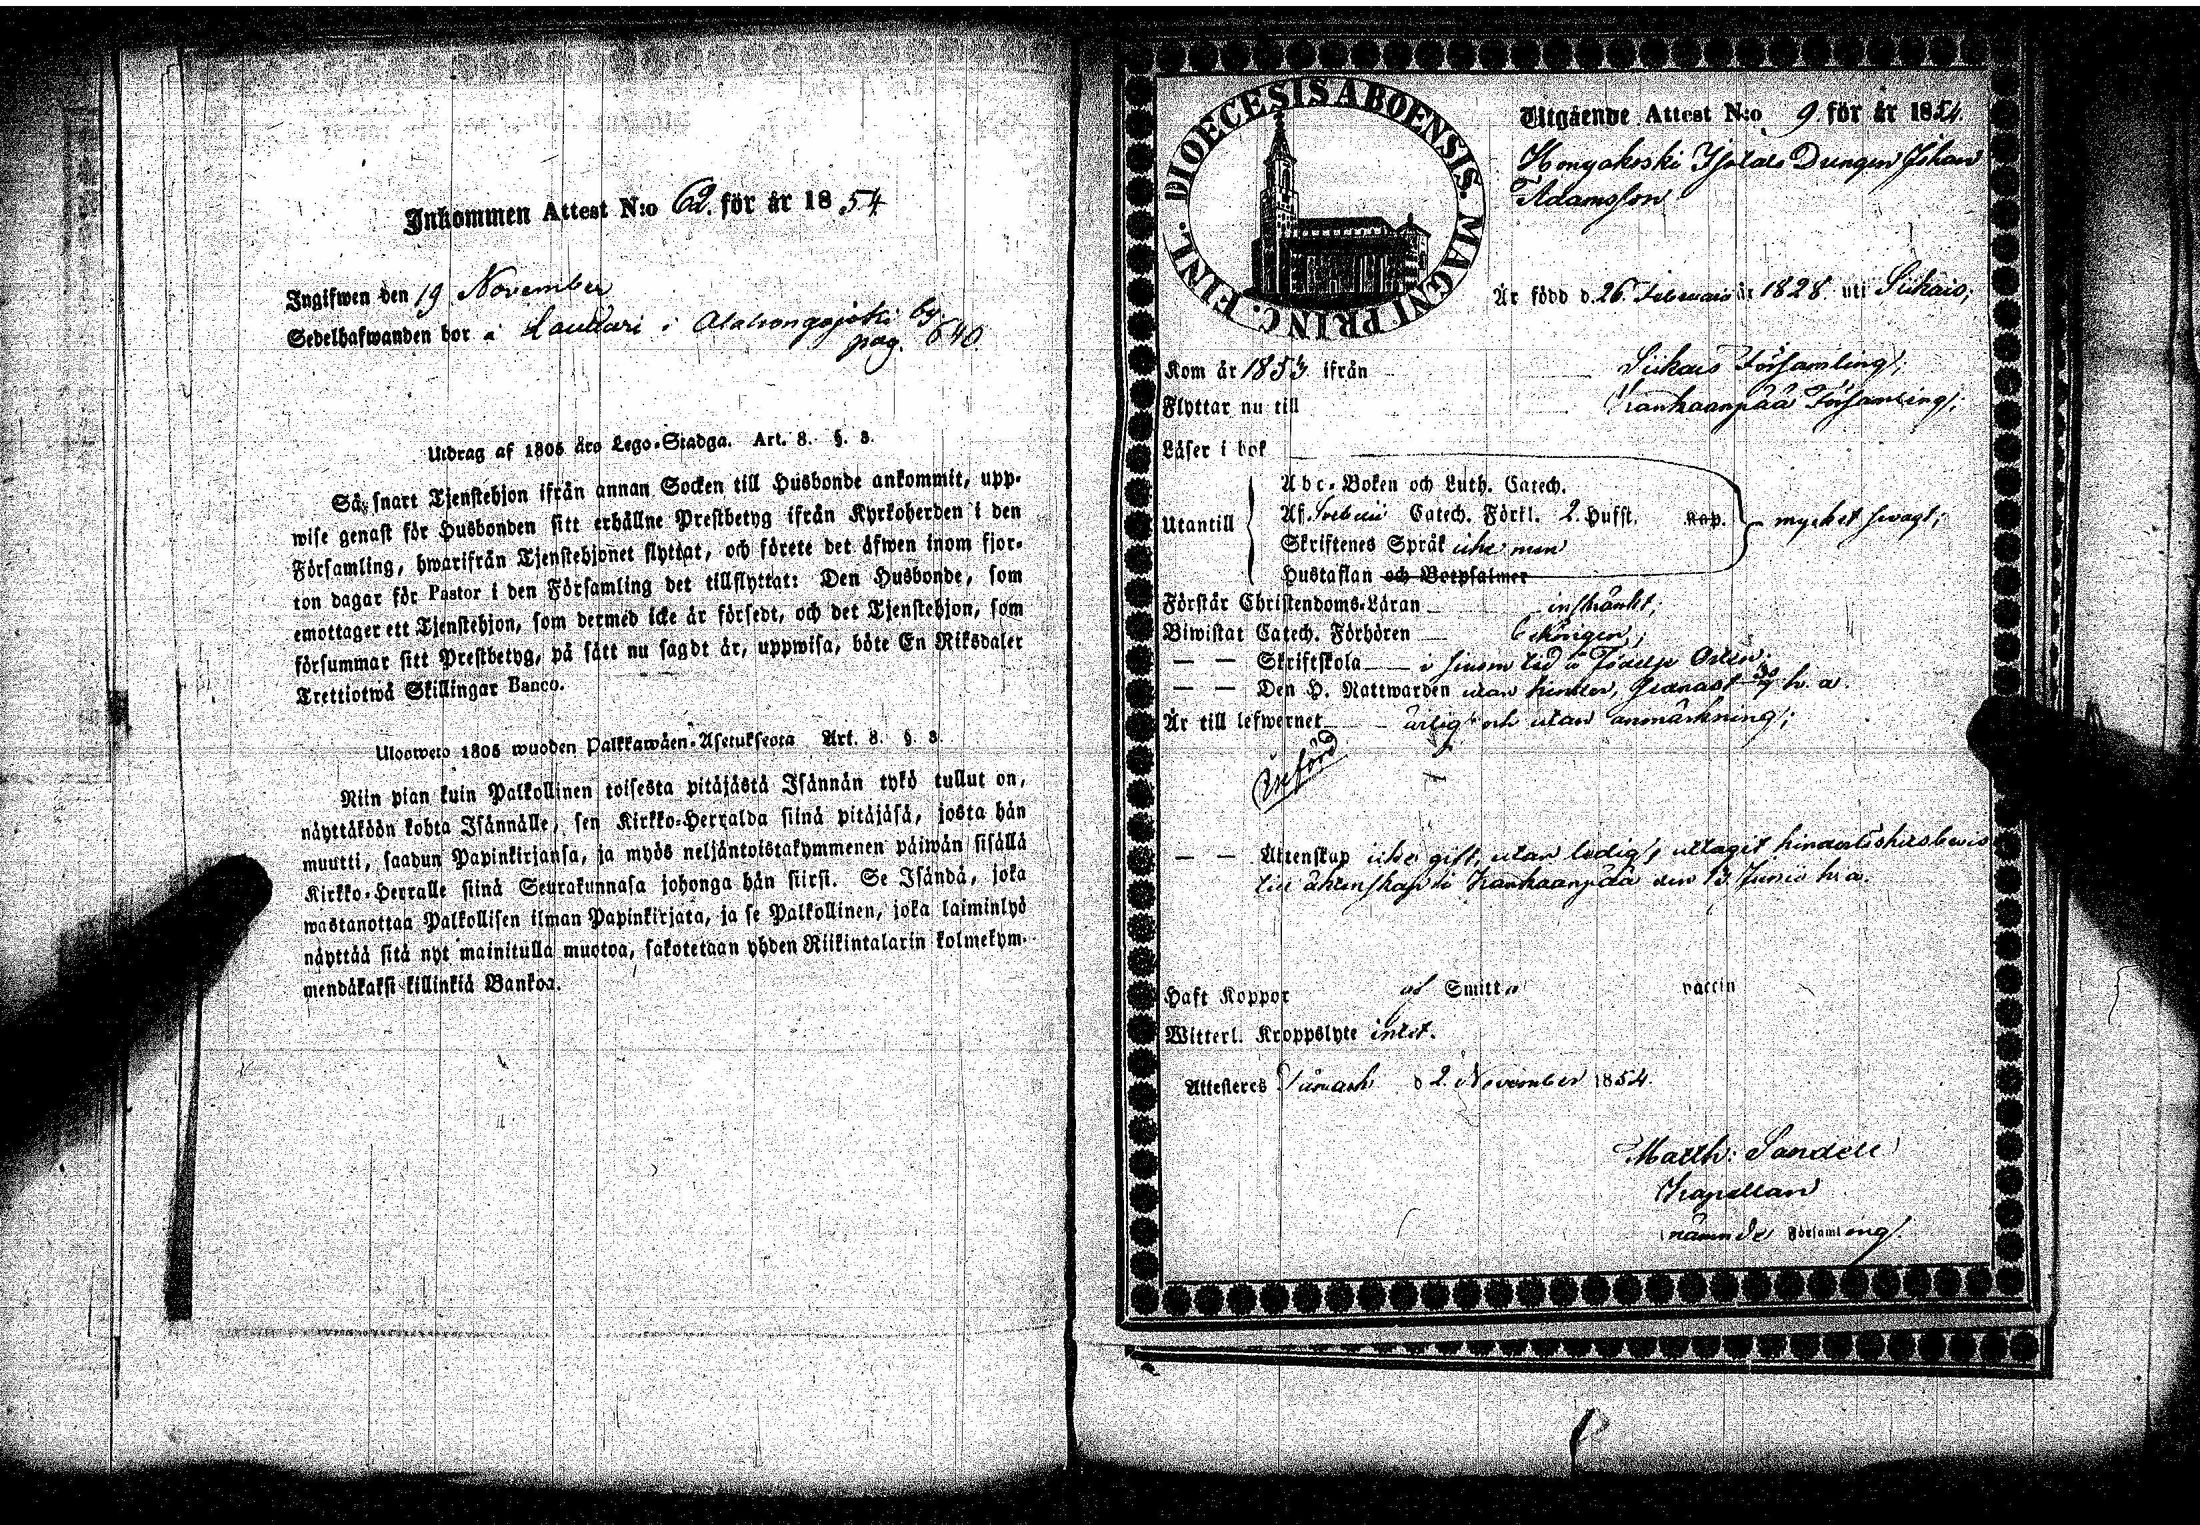 Inkommen Attest N:o 62. för år 1854
Ingifwen den 19 November
Sedelhafwanden bor å Lauttari i Alahongojoki by.
pag. 640.
Utdrag af 1805 års Lego-Stadga. Art. 8. §. 3.
Så snart Tjenstehjon ifrån annan Socken till Husbonde ankommit, upp-
wise genast för Husbonden sitt erhållne Prestbetyg ifrån Kyrkoherden i den
Församling, hwarifrån Tjenstehjonet flyttat, och förete det äfwen inom fjor-
ton dagar för Pastor i den Församling det tillflyttat: Den Husbonde, som
emottager ett Tjenstehjon, som dermed icke är försedt, och det Tjenstehjon, som
försummar sitt Prestbetyg, på sätt nu sagdt är, uppwisa, böte En Riksdaler
Trettiotwå Skillingar Banco.
Ulosweto 1805 wuoden Palkkawäen-Asetuksesta Art. 8. §. 3.
Niin pian kuin Palkollinen toisesta pitäjästä Isännän tykö tullut on,
näyttäköön kohta Isännälle, sen Kirkko-Herralda siinä pitäjäsä, josta hän
muutti, saadun Papinkirjansa, ja myös neljäntoistakymmenen päiwän sisällä
Kirkko-Herralle siinä Seurakunnasa johonga hän siirsi. Se Isändä, joka
wastanottaa Palkollisen ilman Papinkirjata, ja se Palkollinen, joka laiminlyö
näyttää sitä nyt mainitulla muotoa, sakotetaan yhden Riikintalarin kolmekym-
mendäkaksi killinkiä Bankoa.
DIOECESIS ABOENSIS. MAGNI PRINC. FINL.
Utgående Attest N:o 9 för år 1854.
Hongakoski Drengen Johan
Adamsson
Är född d. 26. Februari år 1828. uti Siikais;
Kom år 1853 ifrån Siikais Församling;
Flyttar nu till Kankaanpää Församling;
Läser i bok
Abc-Boken och Luth. Catech.
Utantill Af Svebelii Catech. Förkl. 2. Hufst. Kap. mycket swagt;
Skriftenes Språk icke men
Hustaflan och Botpsalmer
Förstår Christendoms-Läran inskränkt;
Biwistat Catech. Förhören
— — Skriftskola i sinom tid
— — Den H. Nattwarden utan hinder, senast h. a.
Är till lefwernet ärlig och utan anmärkning;
Införd
— — Äktenskap icke gift, utan ledig, uttagit hinderlöshetsbewis
till äktenskap i Kankaanpää den 13 Junii h. a.
Haft Koppor af Smitta vaccin
Witterl. Kroppslyte intet.
Attesteres d 2. November 1854.
Matth: Sandell
Kapellan
nämnde Församling.